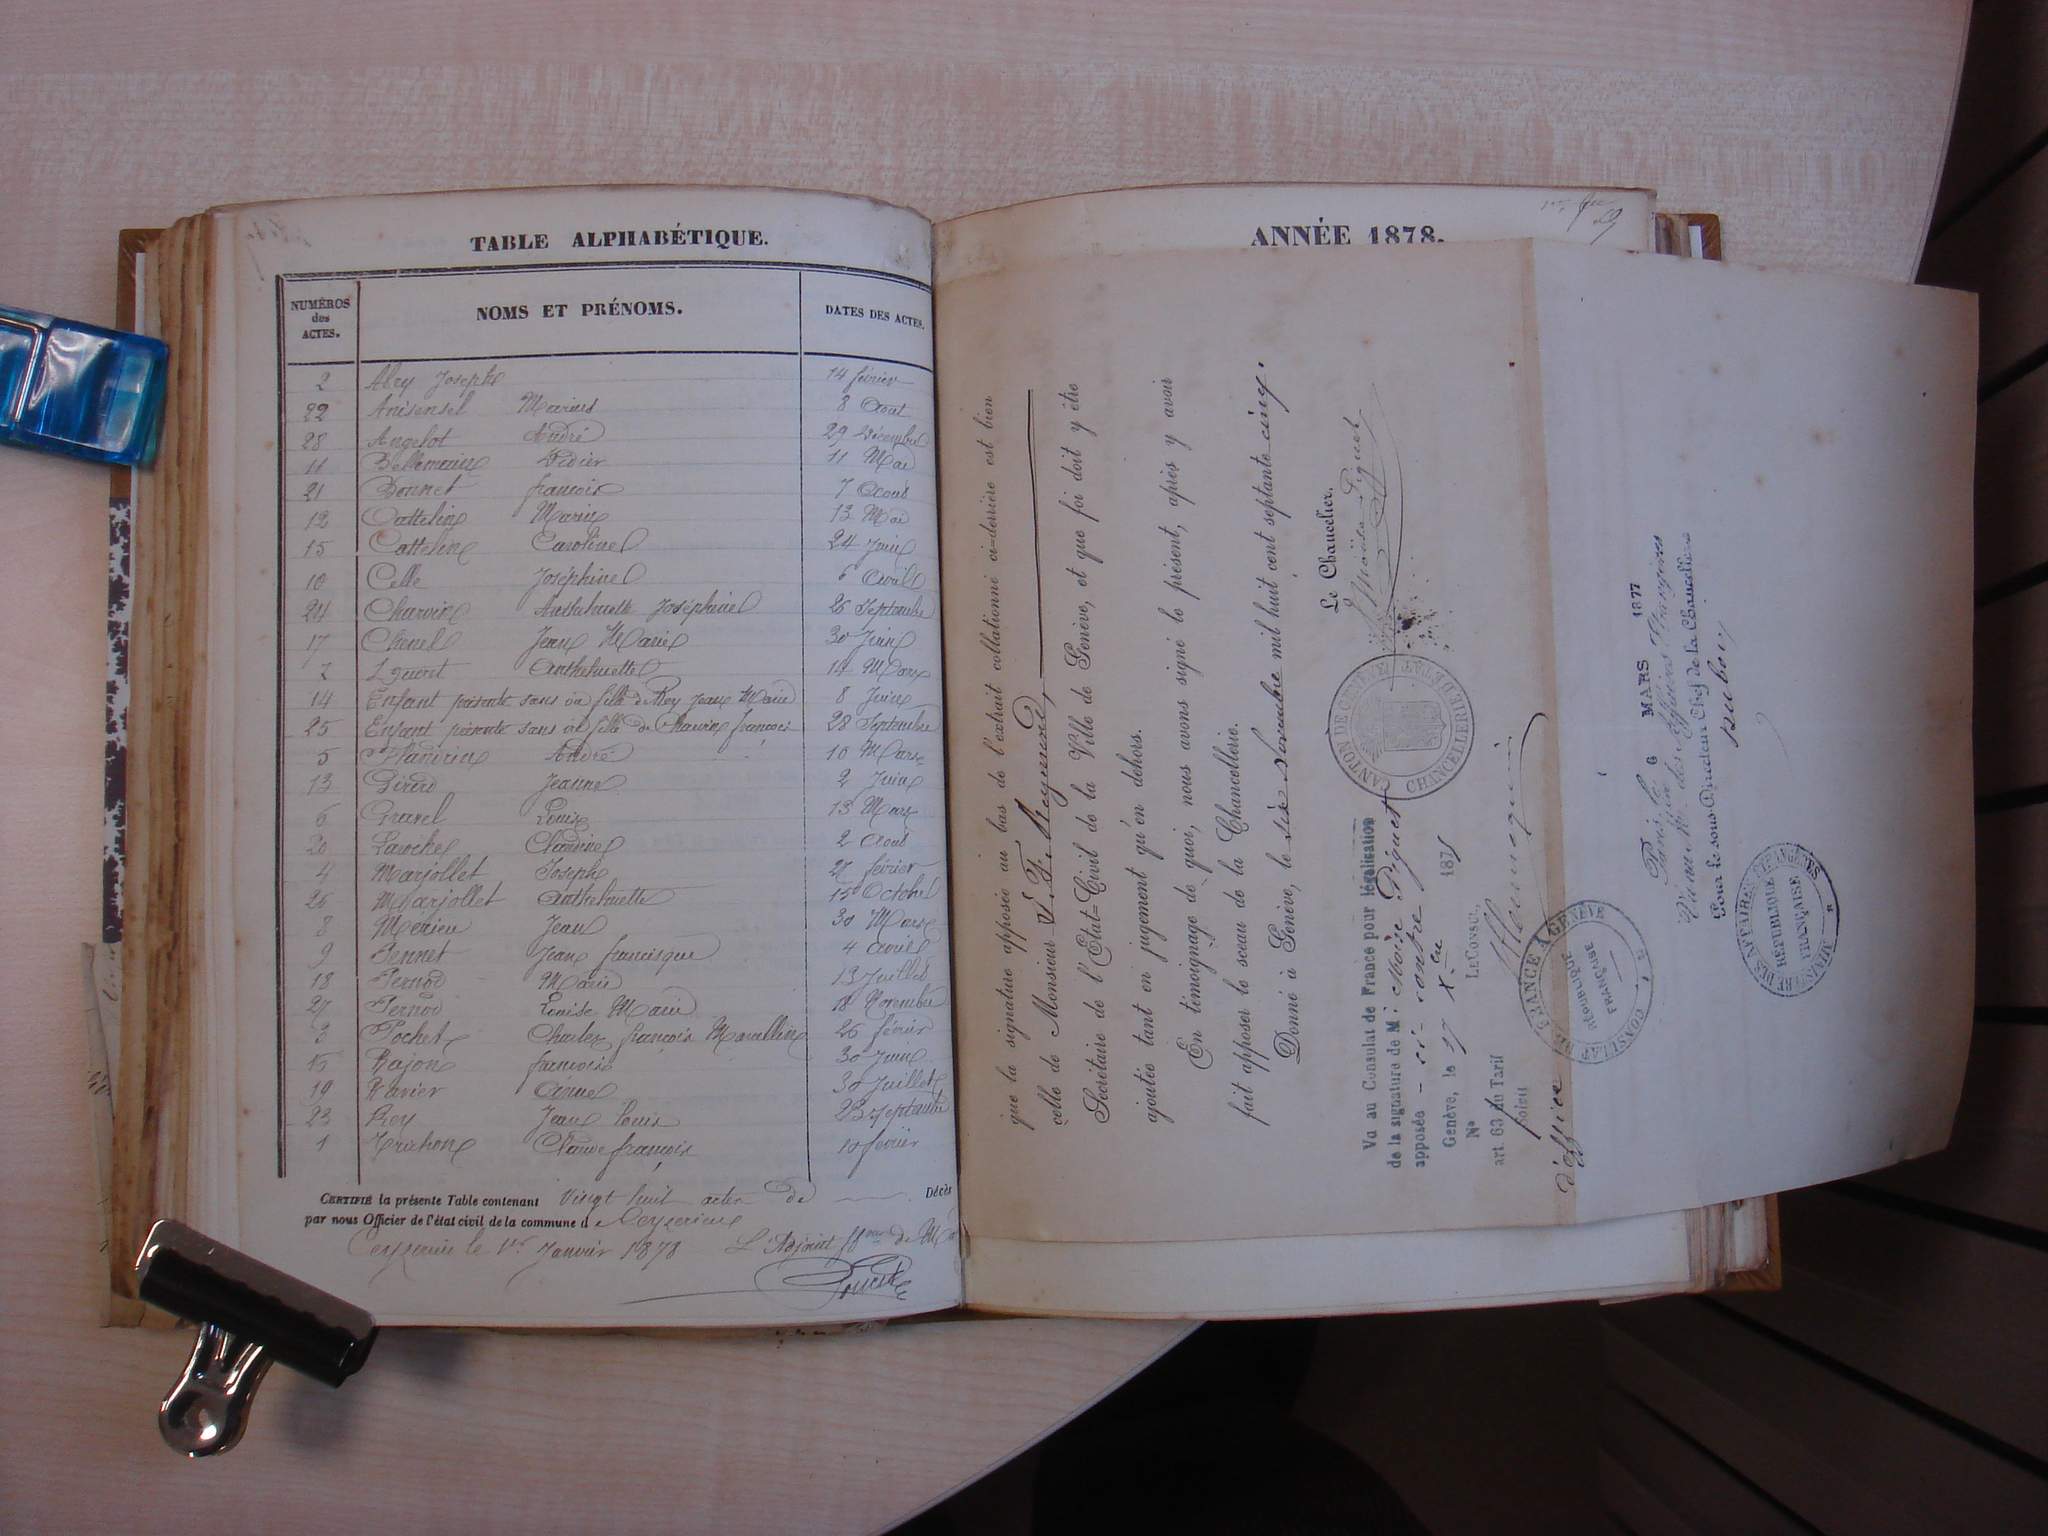 TABLE ALPHABÉTIQUE.
NUMÉROS des ACTES. NOMS ET PRÉNOMS. DATES DES ACTES.
2 Abry Joseph 14 février
22 Anisensel Marius 8 Aout
28 Angelot André 29 Décembre
11 Bellemain Didier 11 Mai
21 Bonnet françois 7 Aout
12 Cattelin Marie 13 Mai
15 Cattelin Caroline 24 Juin
10 Celle Joséphine 6 Avril
24 Charvin Anthelmette Joséphine 26 Septembre
17 Chenel Jean Marie 30 Juin
7 Anthelmette 14 Mars
14 Enfant présenté sans vie fille de Rey Jean Marie 8 Juin
25 Enfant présenté sans vie fille de Charvin françois 28 Septembre
5 Flandrin André 10 Mars
13 Girerd Jeanne 2 Juin
6 Gravel Louis 13 Mars
20 Laroche Claudine 2 Aout
4 Marjollet Joseph 27 février
26 Marjollet Anthelmette 15 Octobre
8 Mérieu Jean 30 Mars
9 Pennet Jean francisque 4 Avril
18 Pernod Marie 13 Juillet
27 Pernod Louise Marie 18 Novembre
3 Pochet Charles françois Marcellin 26 février
Rajon françoise 30 Juin
19 Ravier Aimé 30 Juillet
23 Rey Jean Louis 23 Septembre
1 Truchon Claude françois 10 février
CERTIFIÉ la présente Table contenant Vingt huit actes de Décès
par nous Officier de l'état civil de la commune d Ceyzerieu
Ceyzerieu le 1er Janvier 1878 L'Adjoint
ANNÉE 1878.
que la signature apposée au bas de l'extrait collationné ci-derrière est bien
celle de Monsieur J. F. Reymond,
Secrétaire de l'Etat-Civil de la Ville de Genève, et que foi doit y être
ajoutée tant en jugement qu'en dehors.
En témoignage de quoi, nous avons signé le présent, après y avoir
fait apposer le sceau de la Chancellerie.
Donné à Genève, le six Novembre mil huit cent septante cinq.
Le Chancelier,
Moïse Piguet
CANTON DE GENÈVE
CHANCELLERIE D'ETAT
Vu au Consulat de France pour légalisation
de la signature de M. Moïse Piguet
apposée ci-contre
Genève, le 17 Xbre 1875
No LE CONSUL,
art. 63 du Tarif
d'office
CONSULAT DE FRANCE A GENÈVE
RÉPUBLIQUE FRANÇAISE
Paris, le 6 MARS 1877
Vu au Min. des Affaires Etrangères
Pour le sous-Directeur Chef de la Chancellerie
Dubois
MINISTÈRE DES AFFAIRES ETRANGÈRES
RÉPUBLIQUE FRANÇAISE